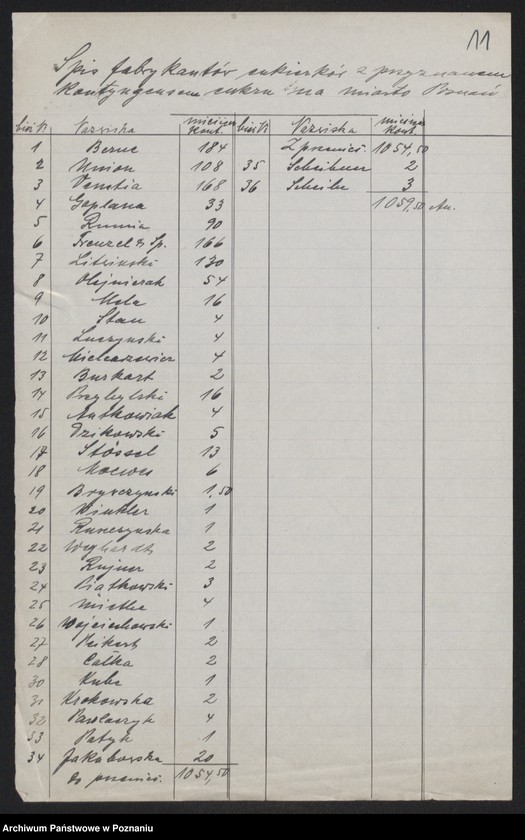 11
Spis fabrykantów cukierków z przyznanem
kontyngensem cukru na miasto Poznań
bież № Nazwiska miesięcz. kont. bież № Nazwiska miesięcz. kont.
1 184 Z przenieś. 1054,50
2 Union 108 35 2
3 Venetia 168 36 Scheibe 3
4 Goplana 33 1059,50
5 90
6 Frenzel & Sp. 166
7 130
8 Olejniczak 54
9 Mela 16
10 Stan 4
11 Łuczyński 4
12 Mielcarzewicz 4
13 Burkart 2
14 Przybylski 16
15 Antkowiak 4
16 Dzikowski 5
17 Stössel 13
18 6
19 Bryszczyński 1,50
20 Winkler 1
21 1
22 2
23 Rujner 2
24 Piątkowski 3
25 4
26 Wojciechowski 1
27 Peikert 2
28 Całka 2
30 Kube 1
31 Krokowska 2
32 Pawlaczyk 4
33 Patyk 1
34 Jakuborska 20
Do przenieś. 1054,50
Archiwum Państwowe w Poznaniu